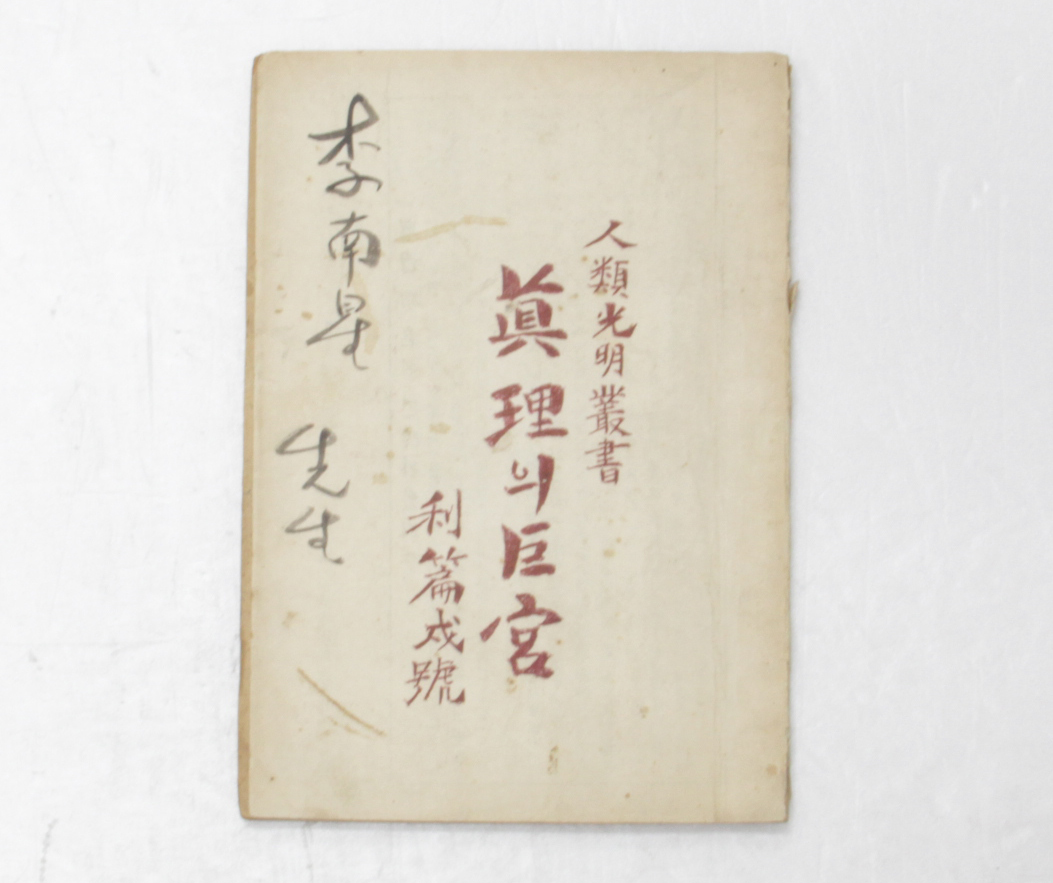 人類光明叢書
眞理의巨宮
利篇戍號
李南星 先生